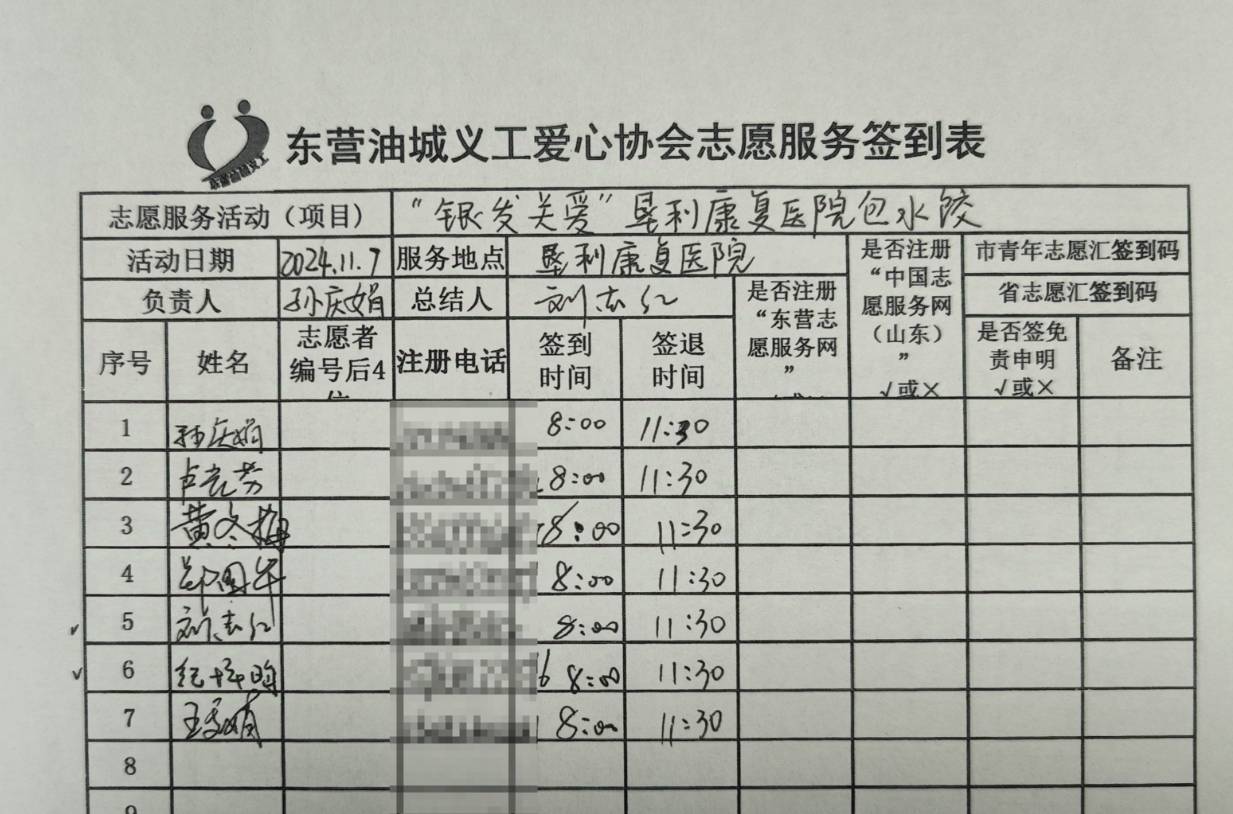 东营油城义工爱心协会志愿服务签到表
志愿服务活动（项目） “银发关爱”垦利康复医院包水饺
活动日期 2024.11.7 服务地点 垦利康复医院 是否注册“中国志愿服务网（山东）” √或× 市青年志愿汇签到码
负责人 孙庆娟 总结人 刘志仁 是否注册“东营志愿服务网” 省志愿汇签到码
序号 姓名 志愿者编号后4位 注册电话 签到时间 签退时间 是否签免责申明 √或× 备注
1 孙庆娟 8:00 11:30
2 卢 芳 8:00 11:30
3 黄冬梅 8:00 11:30
4 国华 8:00 11:30
5 刘志仁 8:00 11:30
6 纪 8:00 11:30
7 王 娟 8:00 11:30
8
9